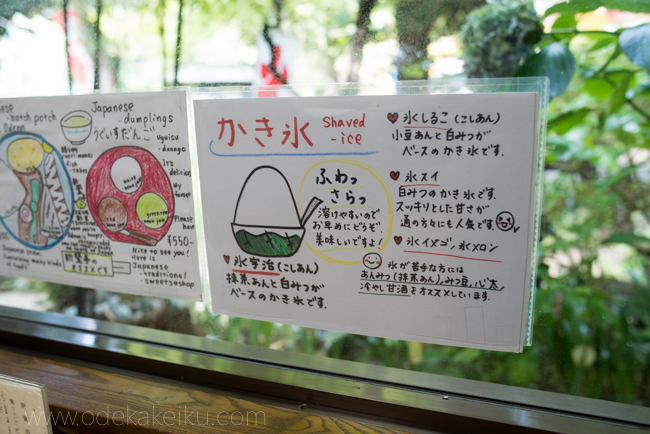 Japanese
hotch potch
Oden
Japanese
dumplings
うぐいすだんご
Uguisu
- dango
It's
delicious
My
Please
¥550-
Nice to see you!
Here is
Japanese
traditional
sweets shop
Japanese stew
containing many kinds
of food
かき氷
Shaved
-ice
ふわっ
さらっ
溶けやすいので
お早めにどうぞ
美味しいですよ!
♥ 氷宇治(こしあん)
抹茶あんと白みつが
ベースのかき氷です.
♥ 氷しるこ(こしあん)
小豆あんと白みつが
ベースのかき氷です.
♥ 氷スイ
白みつのかき氷です.
スッキリとした甘さが
通の方々にも人気です.
♥ 氷イチゴ、氷メロン
氷が苦手な方には
あんみつ(抹茶あん)、みつ豆、心太、
冷やし甘酒をオススメしています.
www.odekakeiku.com